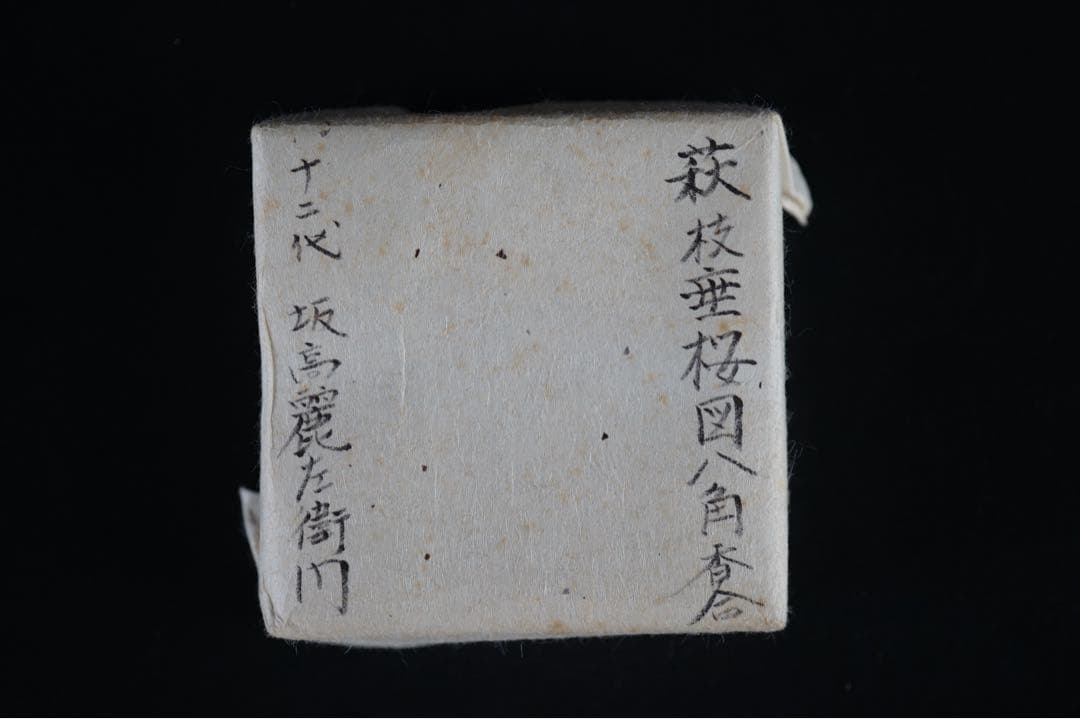 萩枝垂桜図八角香合
十二代 坂高麗左衛門